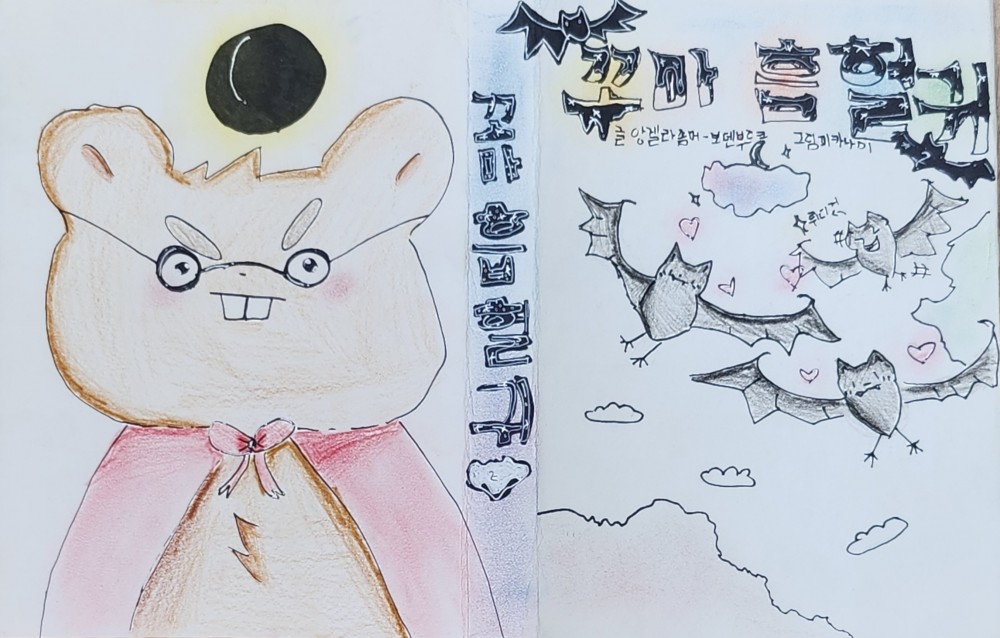 꼬마 흡혈귀
글 앙겔라좀머-보덴부르크 그림피카나미
뤼디거
꼬마 흡혈귀
2